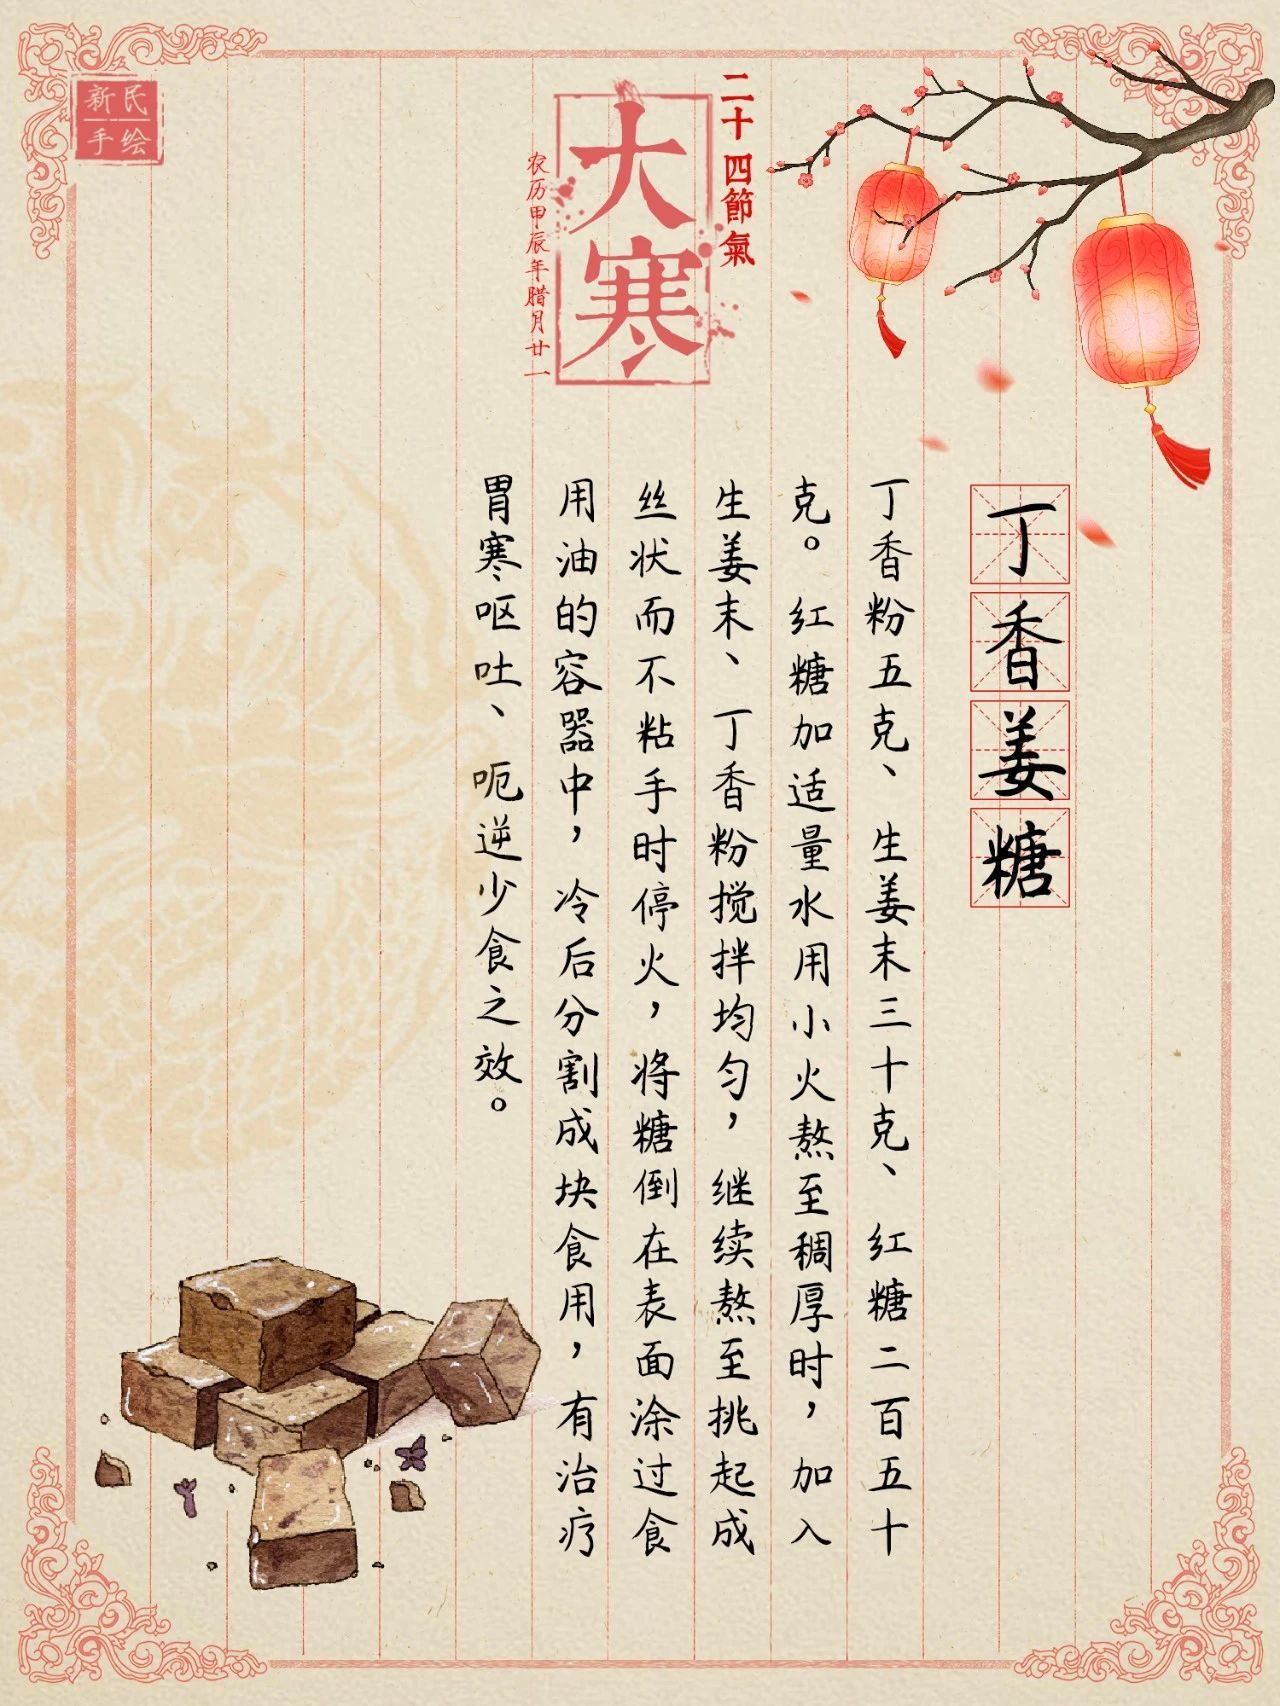 新民
手绘
二十四節氣
大寒
农历甲辰年腊月廿一
丁香姜糖
丁香粉五克、生姜末三十克、红糖二百五十
克。红糖加适量水用小火熬至稠厚时，加入
生姜末、丁香粉搅拌均匀，继续熬至挑起成
丝状而不粘手时停火，将糖倒在表面涂过食
用油的容器中，冷后分割成块食用，有治疗
胃寒呕吐、呃逆少食之效。